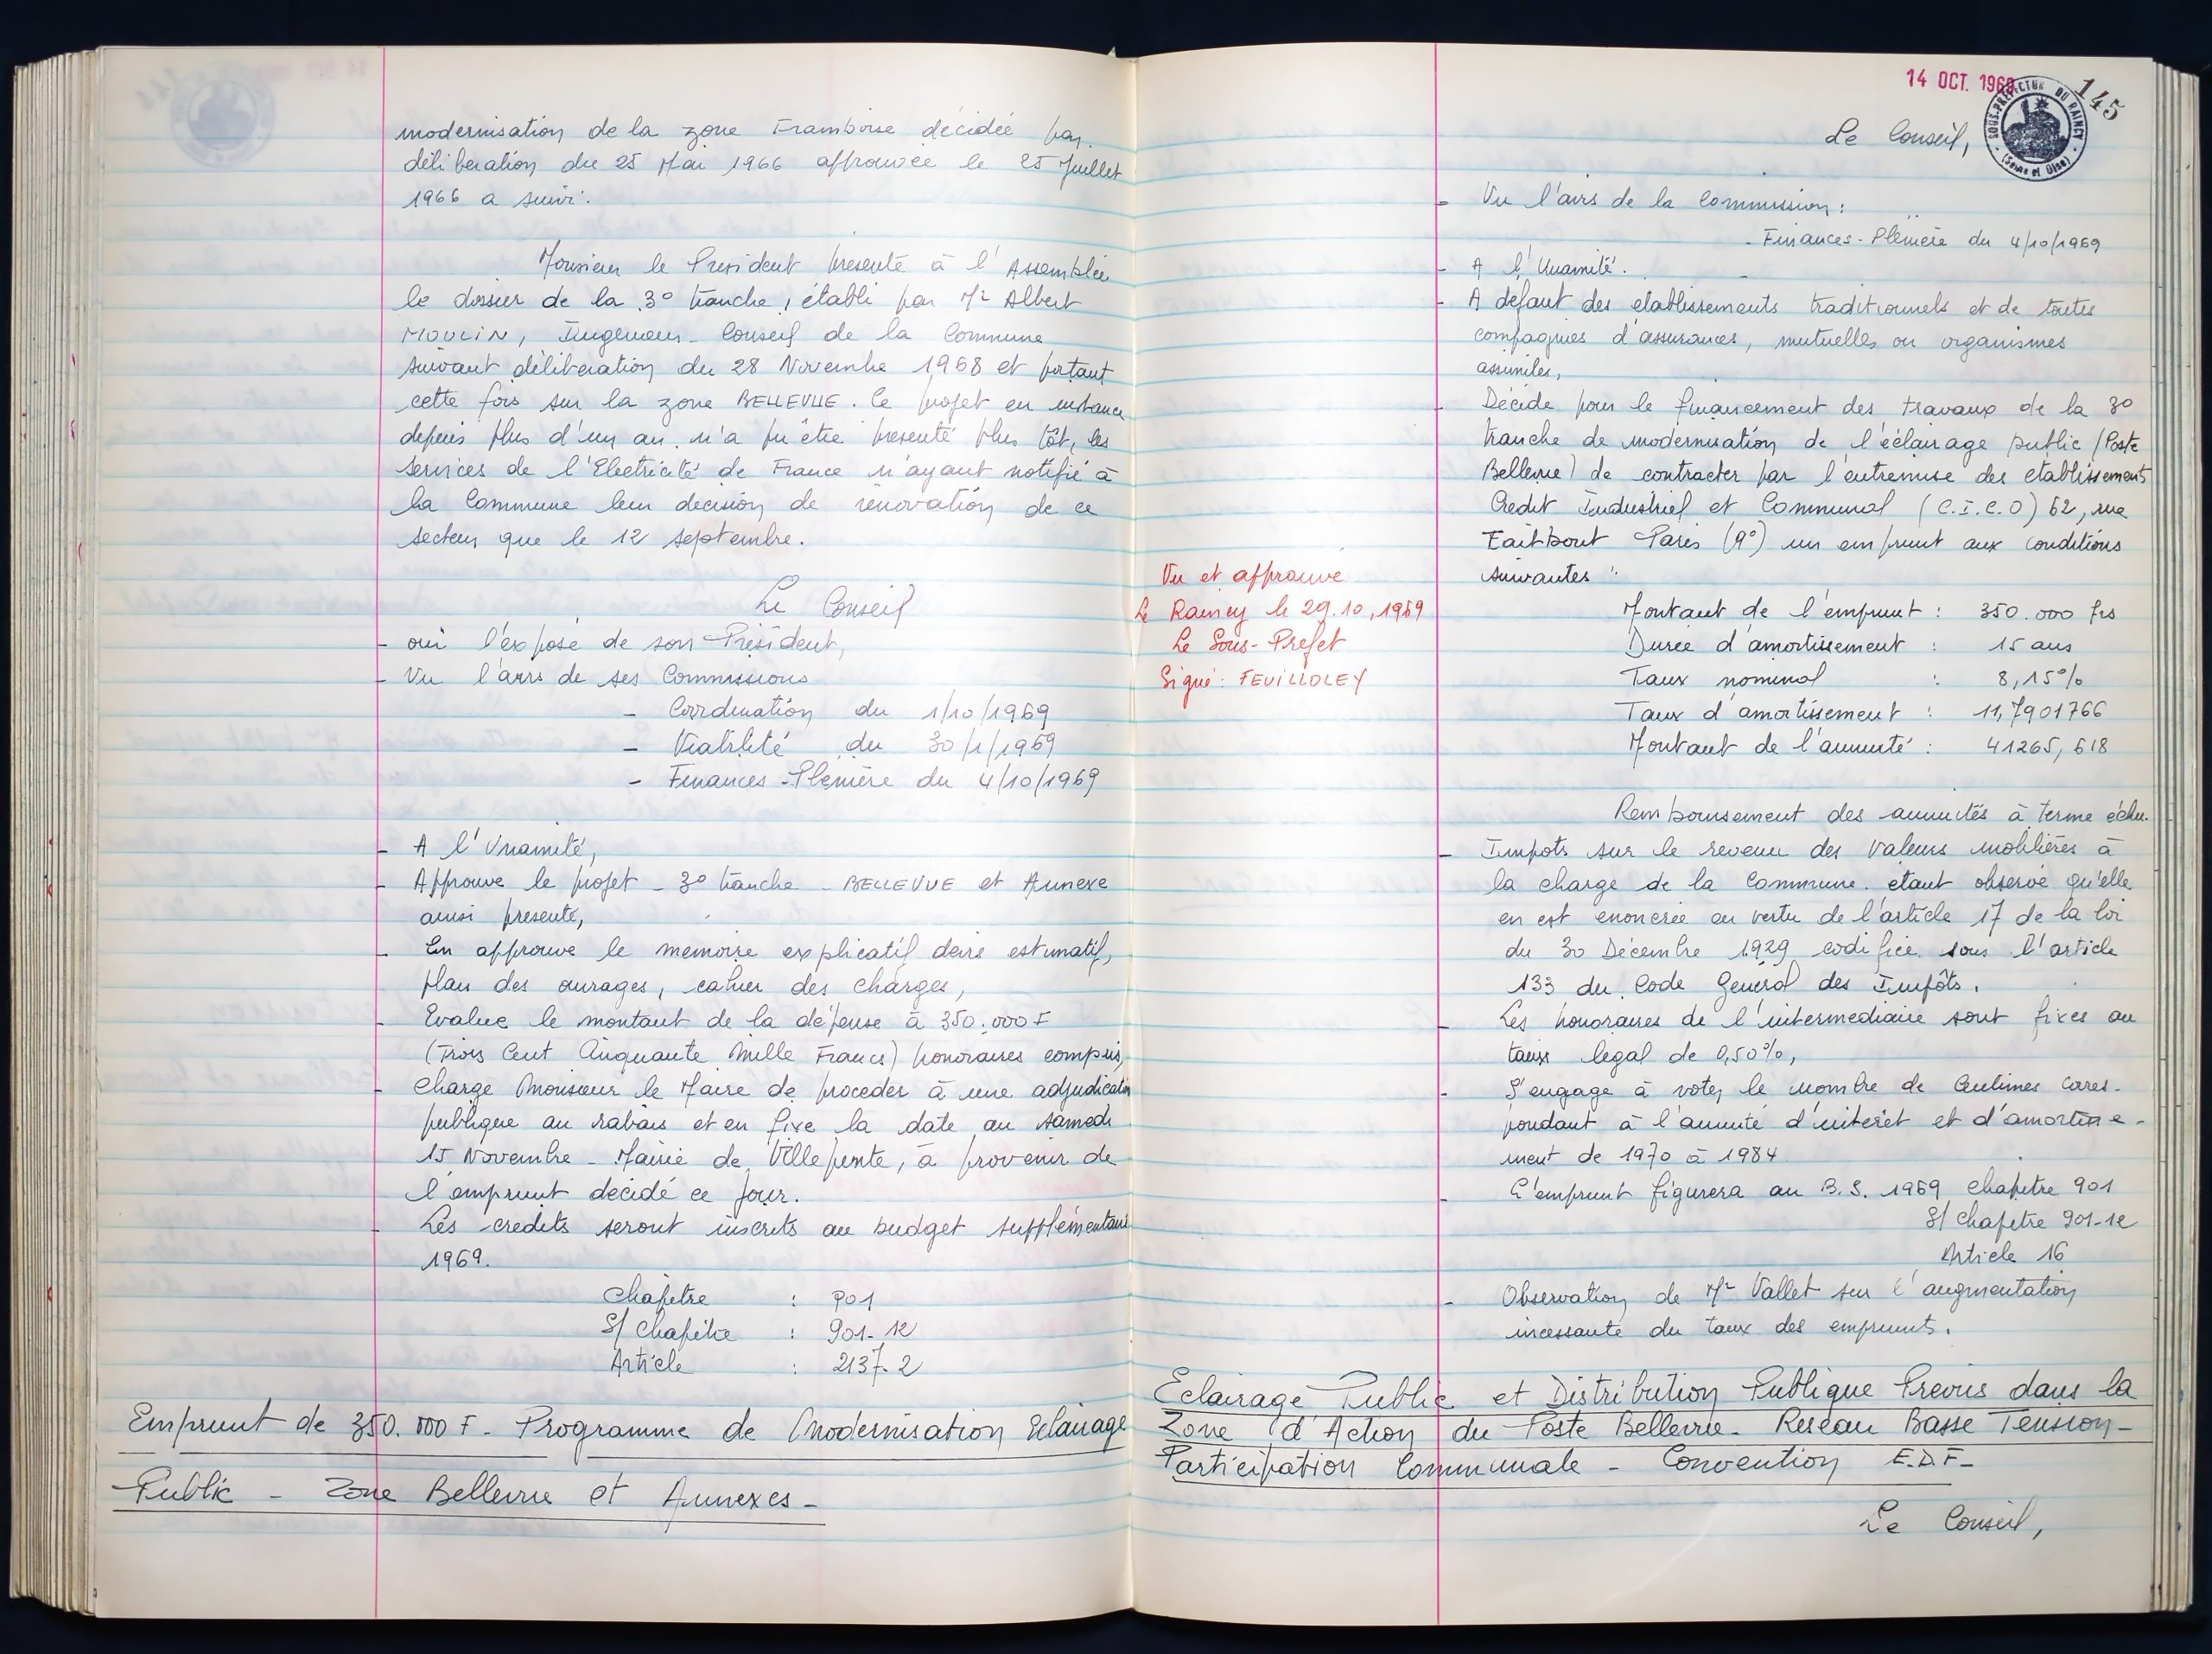 modernisation de la zone Framboise décidée par
délibération du 25 Mai 1966 approuvée le 25 Juillet
1966 a suivi.
Monsieur le President presenté à l'Assemblée
le dossier de la 3° tranche, établi par Mr Albert
MOULIN, Ingenieur-Conseil de la Commune
suivant délibération du 28 Novembre 1968 et portant
cette fois sur la zone BELLEVUE. Ce projet en instance
depuis plus d'un an n'a pu être presenté plus tôt, les
services de l'Electricité de France n'ayant notifié à
la Commune leur decision de rénovation de ce
secteur que le 12 septembre.
Le Conseil
- oui l'exposé de son Président,
- Vu l'avis de ses Commissions
- Coordination du 1/10/1969
- Viabilité du 30/1/1969
- Finances-Plénière du 4/10/1969
- A l'Unamité,
- Approuve le projet - 3° tranche - BELLEVUE et Annexe
ainsi presenté,
- En approuve le memoire explicatif devis estimatif,
plan des ouvrages, cahier des charges,
- Evalue le montant de la dépense à 350.000 F
(Trois Cent Cinquante Mille Francs) honoraires compris,
- Charge Monsieur le Maire de proceder à une adjudication
publique au rabais et en fixe la date au samedi
15 Novembre - Mairie de Villepinte, à provenir de
l'emprunt décidé ce jour.
- Les credits seront inscrits au budget supplémentaire
1969.
Chapitre : 901
S/ chapitre : 901-12
Article : 2137-2
Emprunt de 350.000 F - Programme de Modernisation Eclairage
Public - Zone Bellevue et Annexes -
14 OCT. 1969
SOUS-PREFECTURE DU RAINCY
(Seine et Oise)
145
Le Conseil,
- Vu l'avis de la Commission :
- Finances-Plénière du 4/10/1969
- A l'Unamité.
- A défaut des etablissements traditionnels et de toutes
compagnies d'assurances, mutuelles ou organismes
assimiles,
- Décide pour le financement des travaux de la 3°
tranche de modernisation de l'éclairage public (Poste
Bellevue) de contracter par l'entremise des etablissements
Credit Industriel et Communal (C.I.C.O) 62, rue
Taitbout Paris (9°) un emprunt aux conditions
suivantes :
Montant de l'emprunt : 350.000 frs
Durée d'amortissement : 15 ans
Taux nominal : 8,15%
Taux d'amortissement : 11,7901766
Montant de l'annuité : 41265,618
Vu et approuve
Le Raincy le 29.10.1969
Le Sous-Prefet
Signé : FEUILLOLEY
Remboursement des annuités à terme échu.
- Impots sur le revenu des valeurs mobilières à
la charge de la Commune. étant observé qu'elle
en est enoncrée en vertu de l'article 17 de la loi
du 30 Décembre 1929 codifiée sous l'article
133 du Code Général des Impôts.
- Les honoraires de l'intermediaire sont fixes au
taux legal de 0,50%,
- S'engage à voter le nombre de Centimes corres-
pondant à l'annuité d'interêt et d'amortisse-
ment de 1970 à 1984
- L'emprunt figurera au B.S. 1969 chapitre 901
S/ chapitre 901-12
Article 16
- Observation de Mr Vallet sur l'augmentation
incessante du taux des emprunts.
Eclairage Public et Distribution Publique Prevus dans la
Zone d'Action du Poste Bellevue - Reseau Basse Tension -
Participation Communale - Convention E.D.F -
Le Conseil,